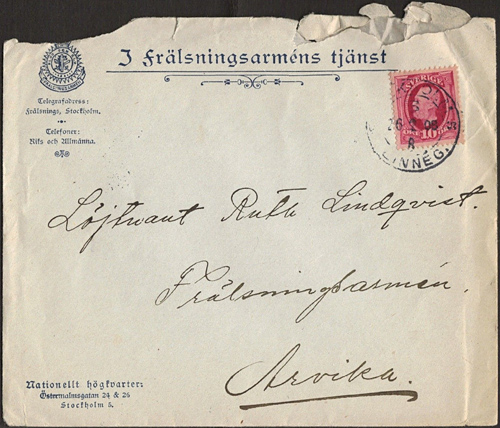 I Frälsningsarméns tjänst
Telegrafadress:
Frälsnings, Stockholm.
Telefoner:
Riks och Allmänna.
SVERIGE
10
LINNÉG.
Löjtnant Ruth Lindqvist.
Frälsningsarmén.
Arvika.
Nationellt högkvarter:
Östermalmsgatan 24 & 26
Stockholm 5.